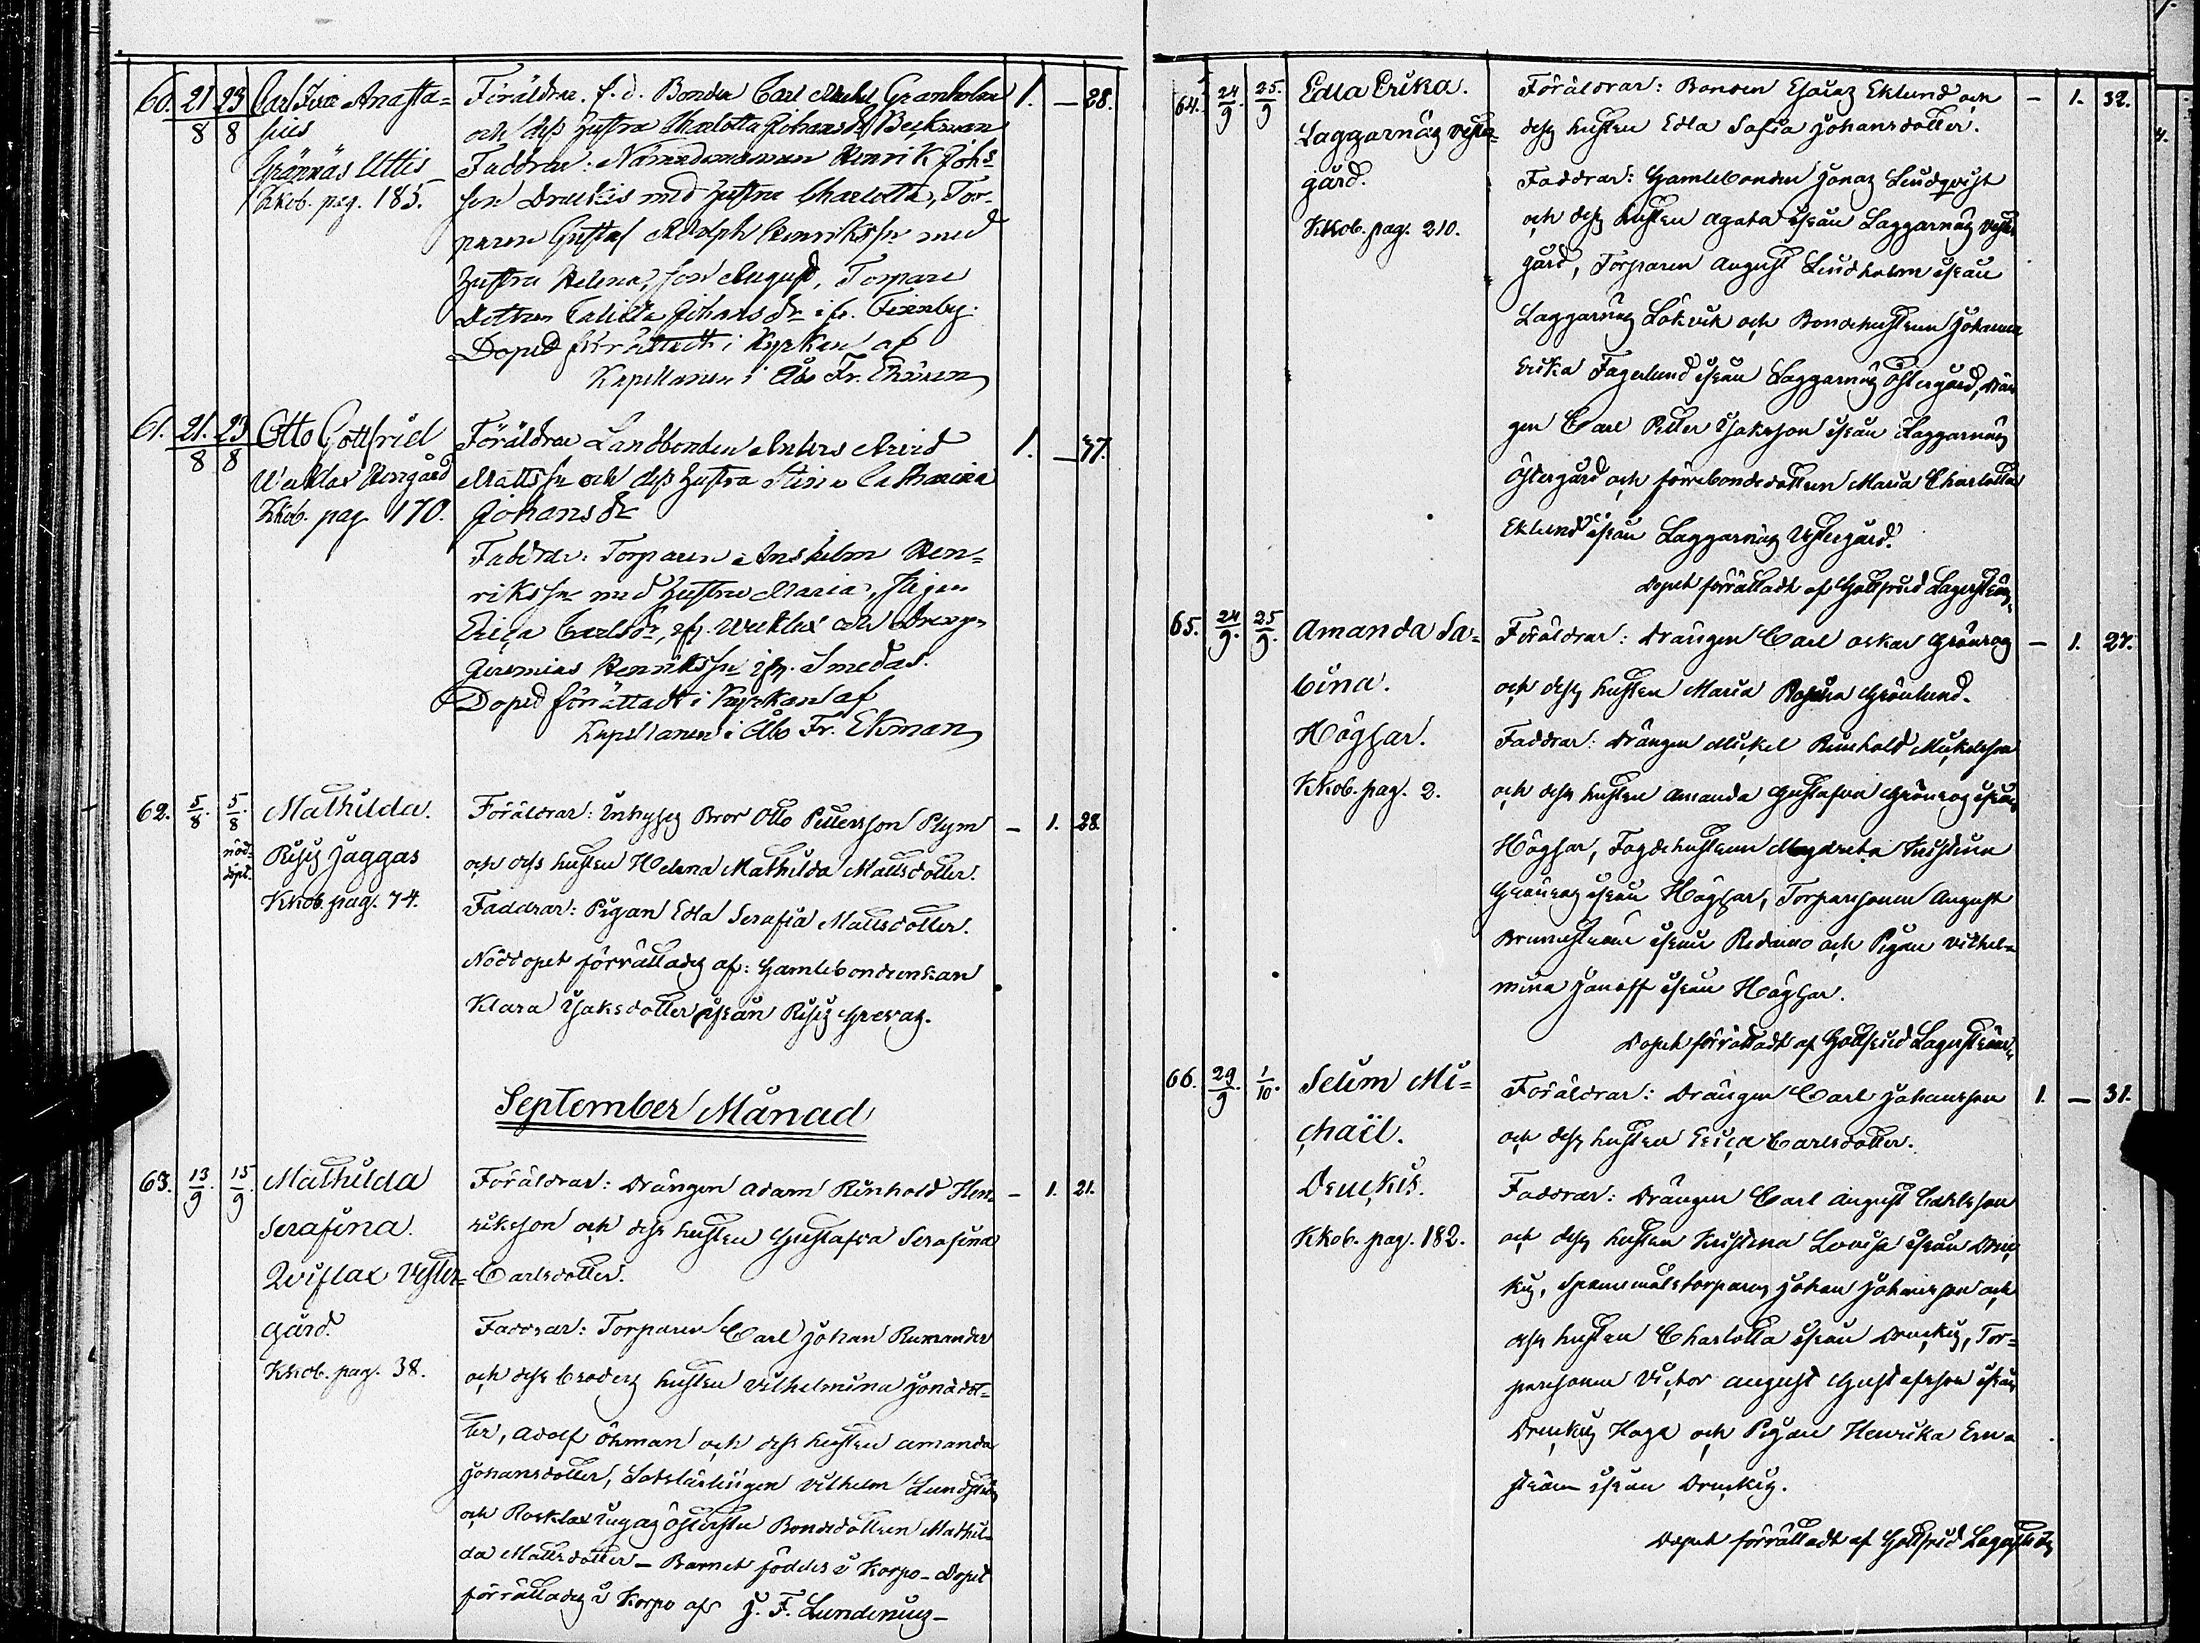 60. 21/8 23/8 Carl Anasta=
sius
Grännäs Uttis
Kkob. pag. 185.
Föräldrar: f. d. Bonden Carl Granholm
och dess hustru Charlotta Johansdr Beckman
Faddrar: Nämndemannen Henrik Johs
son Druckis med hustru Charlotta, Tor-
paren Gustaf Adolph Henrikssn med
hustru Helena, August, Torpare
Dottren Johansdr i fr. Finnby.
Doped förrättadt i Kyrkan af
Kapellanen i Åbo Fr.
1. — 28.
61. 21/8 23/8 Otto Gottfrid
Wæcklax Norrgård
Kkob. pag 170.
Föräldrar Landbonden Anders Arvid
Mattssn och dess hustru Stina Catharina
Johansdr
Faddrar: Torparen Anshelm Hen=
rikssn med hustru Maria, Pigan
Erica Carlsdr, och Drängen
Jeremias Henrikssn ifr. Smedas.
Doped förrättadt i Kyrkan af
Kapellanen i Åbo Fr. Ekman
1. — 37.
62. 5/8. 5/8. nöd=
döpt.
Mathilda.
Risis Jaggas
Kkob. pag. 74.
Föräldrar: Inhyses Bror Otto Pettersson Plym
och dess hustru Helena Mathilda Mattsdotter.
Faddrar: Pigan Edla Serafia Mattsdotter.
Nöddopet förrättades af: Gamlebondeenkan
Klara Isaksdotter ifrån Risis Grevas.
— 1. 28.
September Månad
63. 13/9. 15/9. Mathilda
Serafina.
Qviflax Vester=
gård.
Kkob. pag. 38.
Föräldrar: Drängen Adam Rinhold Hen-
riksson och dess hustru Gustafva Serafina
Carlsdotter.
Faddrar: Torparen Carl Johan Rumander
och dess broders hustru Vilhelmina Jonasdot-
ter, Adolf Öhman och dess hustru Amanda
Johansdotter, Vilhelm Lundström
och Bondedottren Mathil-
da Mattsdotter — Barnet föddes i Korpo — Dopet
förrättades i Korpo af J. F. Lundenius —
— 1. 21.
64. 24/9 25./9 Edla Erika.
Laggarnäs Vester-
gård.
Kkob. pag. 210.
Föräldrar: Bonden Esaias Eklund och
dess hustru Edla Sofia Johansdotter.
Faddrar: Gamlebonden Jonas Lindqvist
och dess hustru Agata ifrån Laggarnäs Vester
gård, Torparen August Lindholm ifrån
Laggarnäs Lökvik och Bondehustrun Johanna
Erika Fagerlund ifrån Laggarnäs Östergård, Drän
gen Carl Petter Isaksson ifrån Laggarnäs
Östergård och förrebondedottren Maria Charlotta
Eklund ifrån Laggarnäs Vestergård.
Dopet förrättadt af Gottfrid Lagerström.
— 1. 32.
65. 24/9. 25/9. Amanda Sa-
bina.
Högsar.
Kkob. pag. 2.
Föräldrar: Drängen Carl Oskar Grönroos
och dess hustru Maria Grönlund.
Faddrar: Drängen Mickel Rinhold Mickelsson
och dess hustru Amanda Gustafva Grönroos ifrån
Högsar, Fogdehustrun Magdreta Kristina
Grönroos ifrån Högsar, Torparsonen August
Brunström ifrån Redamo och Pigan Vilhel-
mina Janoff ifrån Högsar.
Dopet förrättadt af Gottfrid Lagerström.
— 1. 27.
66. 29/9. 1/10. Selim Mi=
chaël.
Druckis.
Kkob. pag. 182.
Föräldrar: Drängen Carl Johansson
och dess hustru Erica Carlsdotter.
Faddrar: Drängen Carl August Carlsson
och dess hustru Kristina Lovisa ifrån Druc
kis, Johan Johansson och
dess hustru Charlotta ifrån Druckis, Tor=
parsonen Victor August Gustafsson ifrån
Druckis Haga och Pigan Henrika Ern-
ström ifrån Druckis.
Dopet förrättadt af Gottfrid Lagerström
1. — 31.